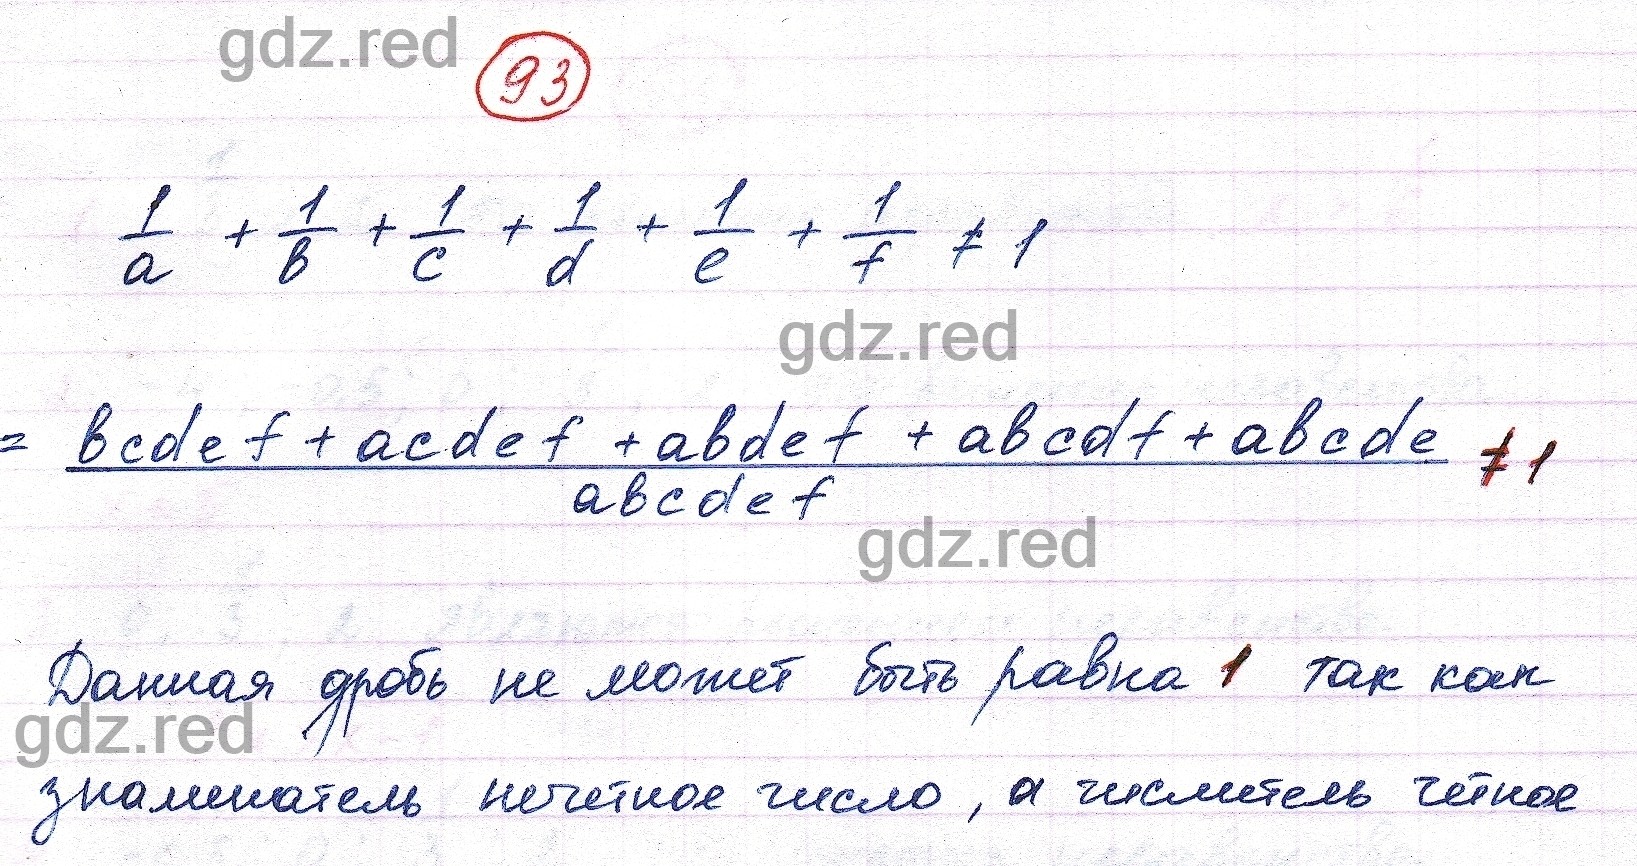 gdz.red
93
1/a + 1/b + 1/c + 1/d + 1/e + 1/f ≠ 1
gdz.red
= (bcdef + acdef + abdef + abcdf + abcde)/(abcdef) ≠ 1
gdz.red
Данная дробь не может быть равна 1 так как
gdz.red
знаменатель нечетное число, а числитель чётное